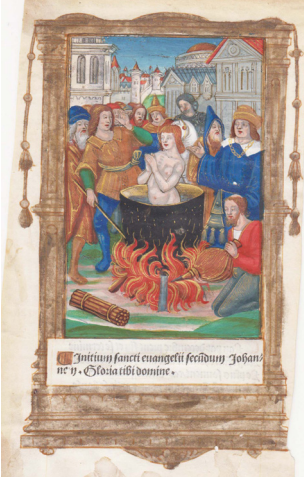 Initium sancti evangelii secūdum Johan/
nē ij. Gloria tibi domine.